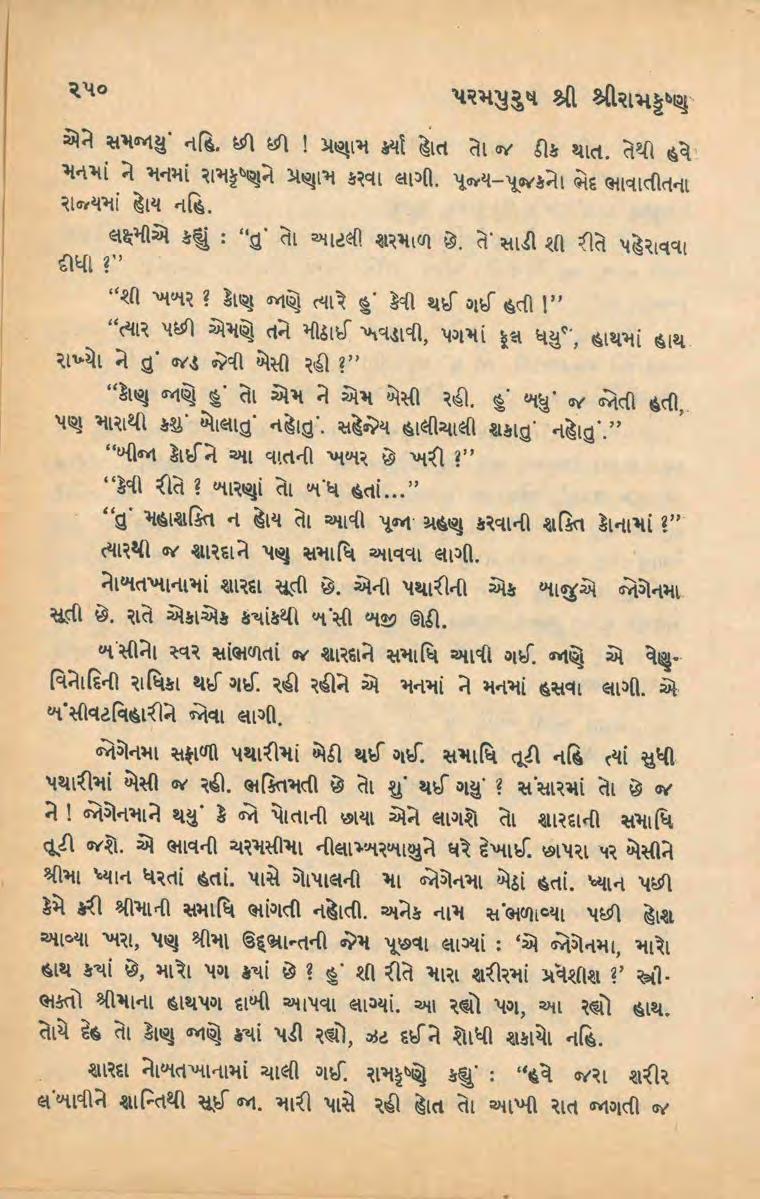 ૨૫૦
પરમપુરુષ શ્રી શ્રીરામકૃષ્ણ
એને સમજાયું નહિ. છી છી ! પ્રણામ કર્યાં હોત તો જ ઠીક થાત. તેથી હવે
મનમાં ને મનમાં રામકૃષ્ણને પ્રણામ કરવા લાગી. પૂજ્ય–પૂજકનો ભેદ ભાવાતીતના
રાજ્યમાં હોય નહિ.
લક્ષ્મીએ કહ્યું : “તું તો આટલી શરમાળ છે. તેં સાડી શી રીતે પહેરાવવા
દીધી ?”
“શી ખબર ? કોણ જાણે ત્યારે હું કેવી થઈ ગઈ હતી !”
“ત્યાર પછી એમણે તને મીઠાઈ ખવડાવી, પગમાં ફૂલ ધર્યું, હાથમાં હાથ
રાખ્યો ને તું જડ જેવી બેસી રહી ?”
“કોણ જાણે હું તો એમ ને એમ બેસી રહી. હું બધું જ જોતી હતી,
પણ મારાથી કશું બોલાતું નહોતું. સહેજેય હાલીચાલી શકાતું નહોતું.”
“બીજા કોઈને આ વાતની ખબર છે ખરી ?”
“કેવી રીતે ? બારણાં તો બંધ હતાં...”
“તું મહાશક્તિ ન હોય તો આવી પૂજા ગ્રહણ કરવાની શક્તિ કોનામાં ?”
ત્યારથી જ શારદાને પણ સમાધિ આવવા લાગી.
નોબતખાનામાં શારદા સૂતી છે. એની પથારીની એક બાજુએ જોગેનમા
સૂતી છે. રાતે એકાએક કયાંકથી બંસી બજી ઊઠી.
બંસીનો સ્વર સાંભળતાં જ શારદાને સમાધિ આવી ગઈ. જાણે એ વેણુ-
વિનોદિની રાધિકા થઈ ગઈ. રહી રહીને એ મનમાં ને મનમાં હસવા લાગી. એ
બંસીવટવિહારીને જોવા લાગી.
જોગેનમા સફાળી પથારીમાં બેઠી થઈ ગઈ. સમાધિ તૂટી નહિ ત્યાં સુધી
પથારીમાં બેસી જ રહી. ભક્તિમતી છે તો શું થઈ ગયું ? સંસારમાં તો છે જ
ને ! જોગેનમાને થયું કે જો પોતાની છાયા એને લાગશે તો શારદાની સમાધિ
તૂટી જશે. એ ભાવની ચરમસીમા નીલામ્બરબાબુને ઘરે દેખાઈ. છાપરા પર બેસીને
શ્રીમા ધ્યાન ધરતાં હતાં. પાસે ગોપાલની મા જોગેનમા બેઠાં હતાં. ધ્યાન પછી
કેમે કરી શ્રીમાની સમાધિ ભાંગતી નહોતી. અનેક નામ સંભળાવ્યા પછી હોશ
આવ્યા ખરા, પણ શ્રીમા ઉદ્ભ્રાન્તની જેમ પૂછવા લાગ્યાં : ‘એ જોગેનમા, મારો
હાથ કયાં છે, મારો પગ કયાં છે ? હું શી રીતે મારા શરીરમાં પ્રવેશીશ ?’ સ્ત્રી-
ભક્તો શ્રીમાના હાથપગ દાબી આપવા લાગ્યાં. આ રહ્યો પગ, આ રહ્યો હાથ.
તોયે દેહ તો કોણ જાણે કયાં પડી રહ્યો, ઝટ દઈને શોધી શકાયો નહિ.
શારદા નોબતખાનામાં ચાલી ગઈ. રામકૃષ્ણે કહ્યું : “હવે જરા શરીર
લંબાવીને શાન્તિથી સૂઈ જા. મારી પાસે રહી હોત તો આખી રાત જાગતી જ